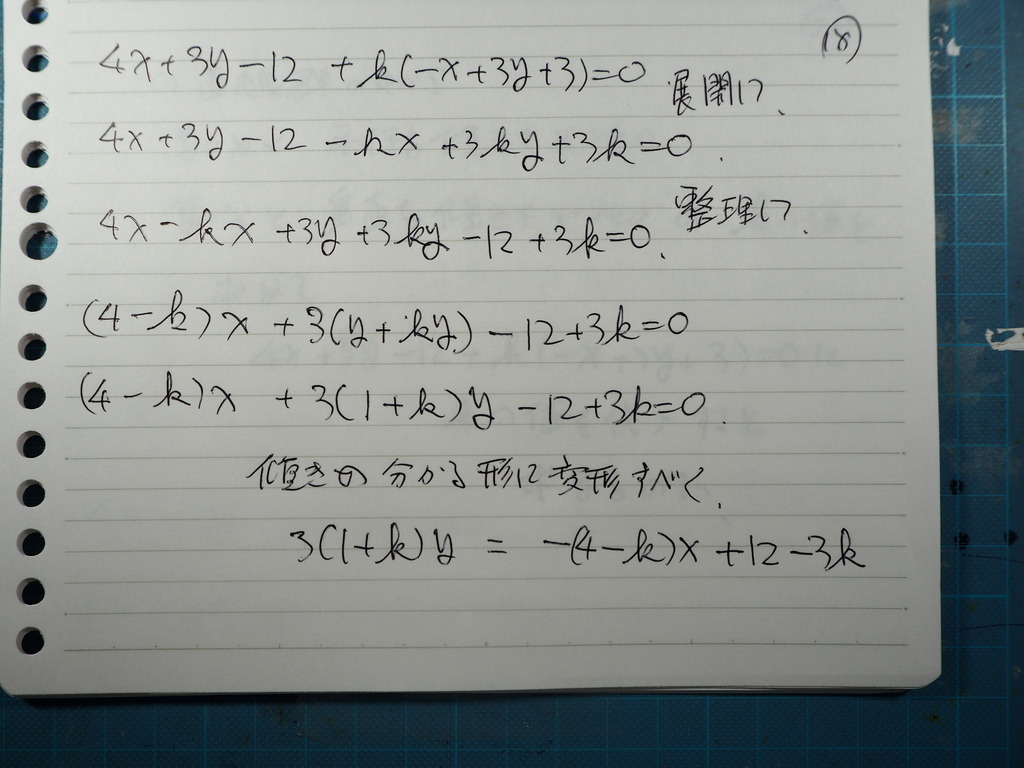 (18)
4x+3y-12 +k(-x+3y+3)=0
展開して、
4x+3y-12 -kx +3ky+3k=0.
整理して、
4x-kx +3y+3ky-12+3k=0.
(4-k)x +3(y+ky)-12+3k=0
(4-k)x +3(1+k)y -12+3k=0.
傾きの分かる形に変形すべく、
3(1+k)y = -(4-k)x+12-3k